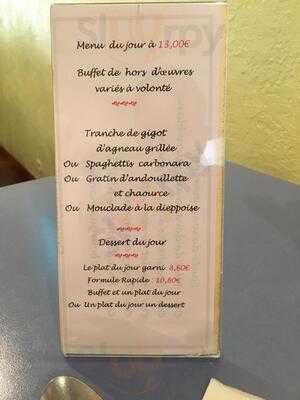 Menu du jour à 13,00€
Buffet de hors d'œuvres
variés à volonté
Tranche de gigot
d'agneau grillée
Ou Spaghettis carbonara
Ou Gratin d'andouillette
et chaource
Ou Mouclade à la dieppoise
Dessert du jour
Le plat du jour garni 8,80€
Formule Rapide 10,80€
Buffet et un plat du jour
Ou Un plat du jour un dessert